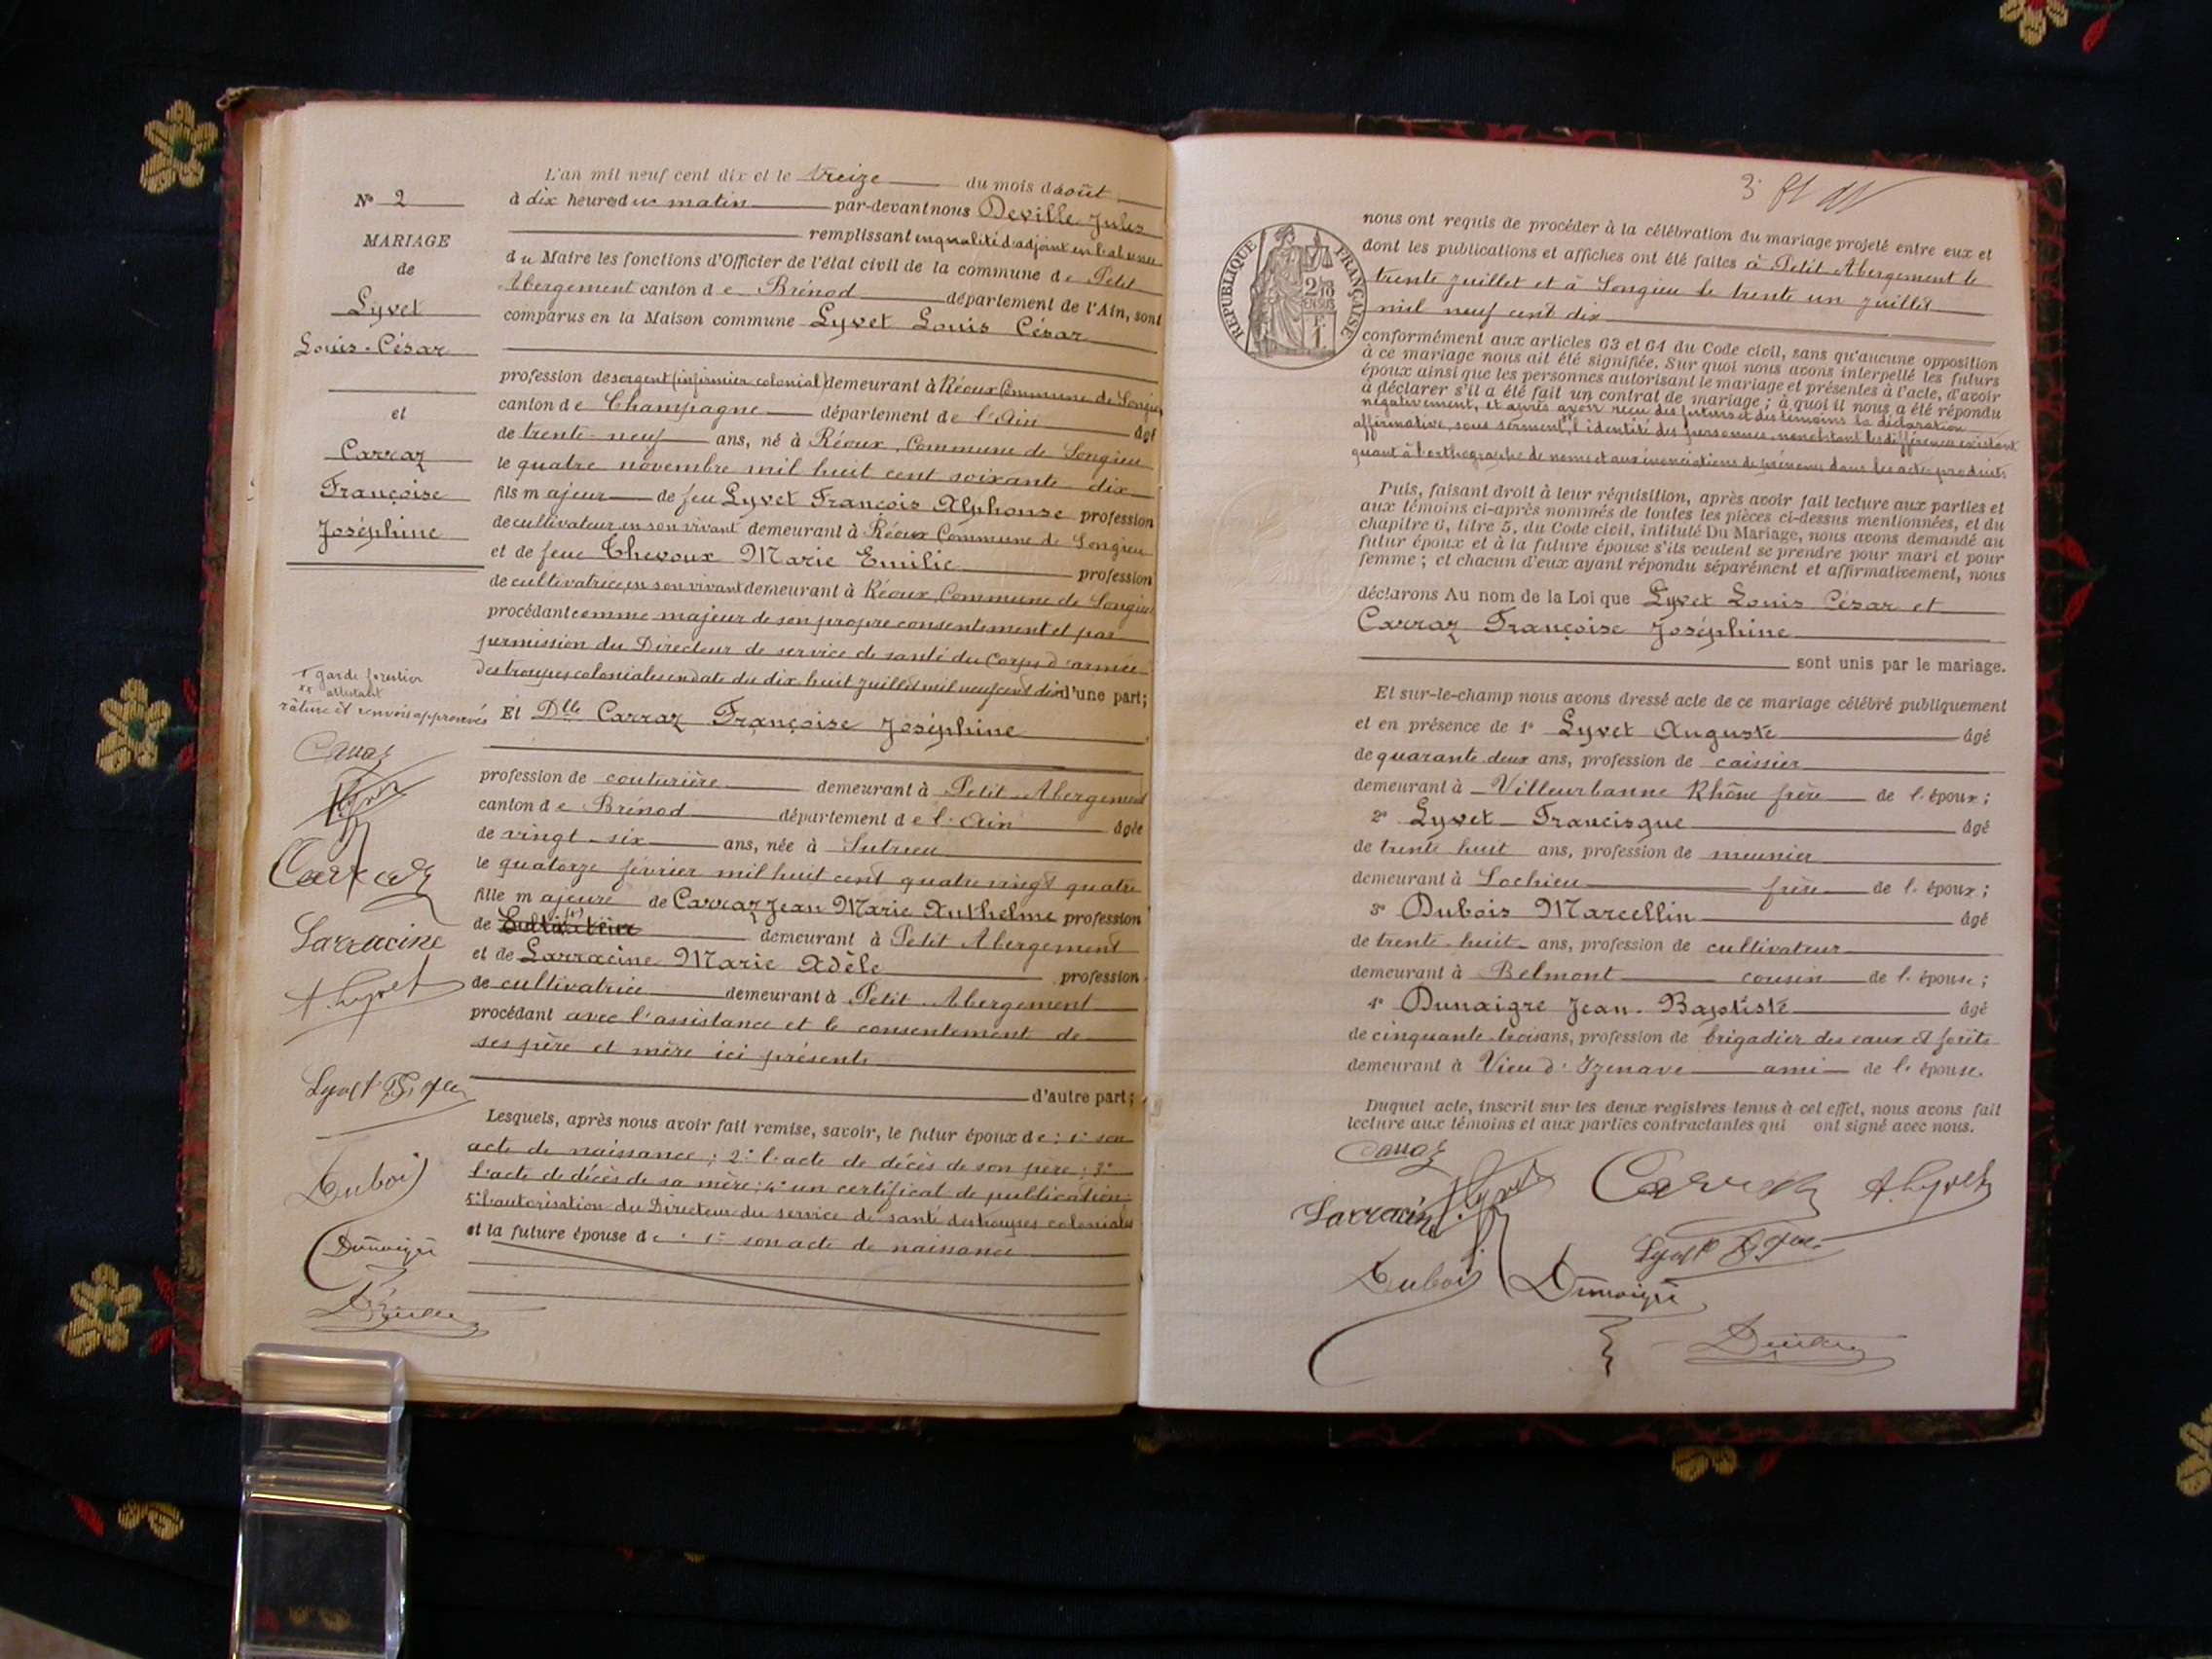 L'an mil neuf cent dix et le treize du mois d'août
à dix heures du matin par-devant nous Deville Jules
remplissant en qualité d'adjoint en l'absence
du Maire les fonctions d'Officier de l'état civil de la commune de Petit
Abergement canton de Brénod département de l'Ain, sont
comparus en la Maison commune Lyvet Louis César
profession de sergent (infirmier colonial) demeurant à Réoux Commune de Songieu
canton de Champagne département de l'Ain âgé
de trente-neuf ans, né à Réoux, Commune de Songieu
le quatre novembre mil huit cent soixante-dix
fils majeur de feu Lyvet François Alphonse profession
de cultivateur en son vivant demeurant à Réoux Commune de Songieu
et de feue Thevoux Marie Emilie profession
de cultivatrice, en son vivant demeurant à Réoux, Commune de Songieu
procédant comme majeur de son propre consentement et par
permission du Directeur de service de santé du Corps d'armée
des troupes coloniales en date du dix huit juillet mil neuf cent dix d'une part;
Et Dlle Carraz Françoise Joséphine
profession de couturière demeurant à Petit-Abergement
canton de Brénod département de l'Ain âgée
de vingt-six ans, née à Sutrieu
le quatorze février mil huit cent quatre vingt quatre
fille majeure de Carraz Jean Marie Anthelme profession
de demeurant à Petit Abergement
et de Larracine Marie Adèle profession
de cultivatrice demeurant à Petit-Abergement
procédant avec l'assistance et le consentement de
ses père et mère ici présents
d'autre part;
Lesquels, après nous avoir fait remise, savoir, le futur époux de : 1° son
acte de naissance; 2° l'acte de décès de son père; 3°
l'acte de décès de sa mère; 4° un certificat de publication;
5° l'autorisation du Directeur du service de santé des troupes coloniales
et la future épouse de : 1° son acte de naissance
N° 2
MARIAGE
de
Lyvet
Louis-César
et
Carraz
Françoise
Joséphine
garde forestier
rature et renvois approuvés
Carraz
Larracine
A. Lyvet
Dubois
Dunaigre
nous ont requis de procéder à la célébration du mariage projeté entre eux et
dont les publications et affiches ont été faites à Petit Abergement le
trente juillet et à Songieu le trente un juillet
mil neuf cent dix
RÉPUBLIQUE FRANÇAISE
conformément aux articles 63 et 64 du Code civil, sans qu'aucune opposition
à ce mariage nous ait été signifiée. Sur quoi nous avons interpellé les futurs
époux ainsi que les personnes autorisant le mariage et présentes à l'acte, d'avoir
à déclarer s'il a été fait un contrat de mariage ; à quoi il nous a été répondu
négativement, et après avoir reçu des futurs et des témoins la déclaration
affirmative, sous serment, l'identité des personnes, nonobstant les différences existant
quant à l'orthographe de noms et aux énonciations de prénoms dans les actes produits.
Puis, faisant droit à leur réquisition, après avoir fait lecture aux parties et
aux témoins ci-après nommés de toutes les pièces ci-dessus mentionnées, et du
chapitre 6, titre 5, du Code civil, intitulé Du Mariage, nous avons demandé au
futur époux et à la future épouse s'ils veulent se prendre pour mari et pour
femme ; et chacun d'eux ayant répondu séparément et affirmativement, nous
déclarons Au nom de la Loi que Lyvet Louis César et
Carraz Françoise Joséphine
sont unis par le mariage.
Et sur-le-champ nous avons dressé acte de ce mariage célébré publiquement
et en présence de 1° Lyvet Auguste âgé
de quarante deux ans, profession de caissier
demeurant à Villeurbanne Rhône frère de l'époux ;
2° Lyvet Francisque âgé
de trente huit ans, profession de meunier
demeurant à Lochieu frère de l'époux ;
3° Dubois Marcellin âgé
de trente-huit ans, profession de cultivateur
demeurant à Belmont cousin de l'épouse ;
4° Dunaigre Jean-Baptiste âgé
de cinquante-trois ans, profession de brigadier des eaux et forêts
demeurant à Vieu d'Izenave ami de l'épouse.
Duquel acte, inscrit sur les deux registres tenus à cet effet, nous avons fait
lecture aux témoins et aux parties contractantes qui ont signé avec nous.
Carraz
A. Lyvet
Larracine
Dubois
Dunaigre